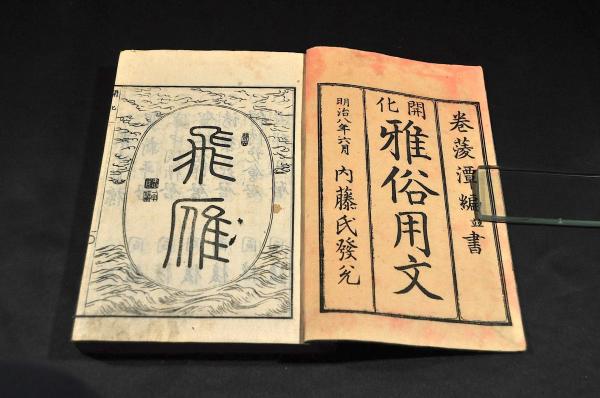 卷菱潭編並書
開化
雅俗用文
明治八年六月
内藤氏發兌
飛雁